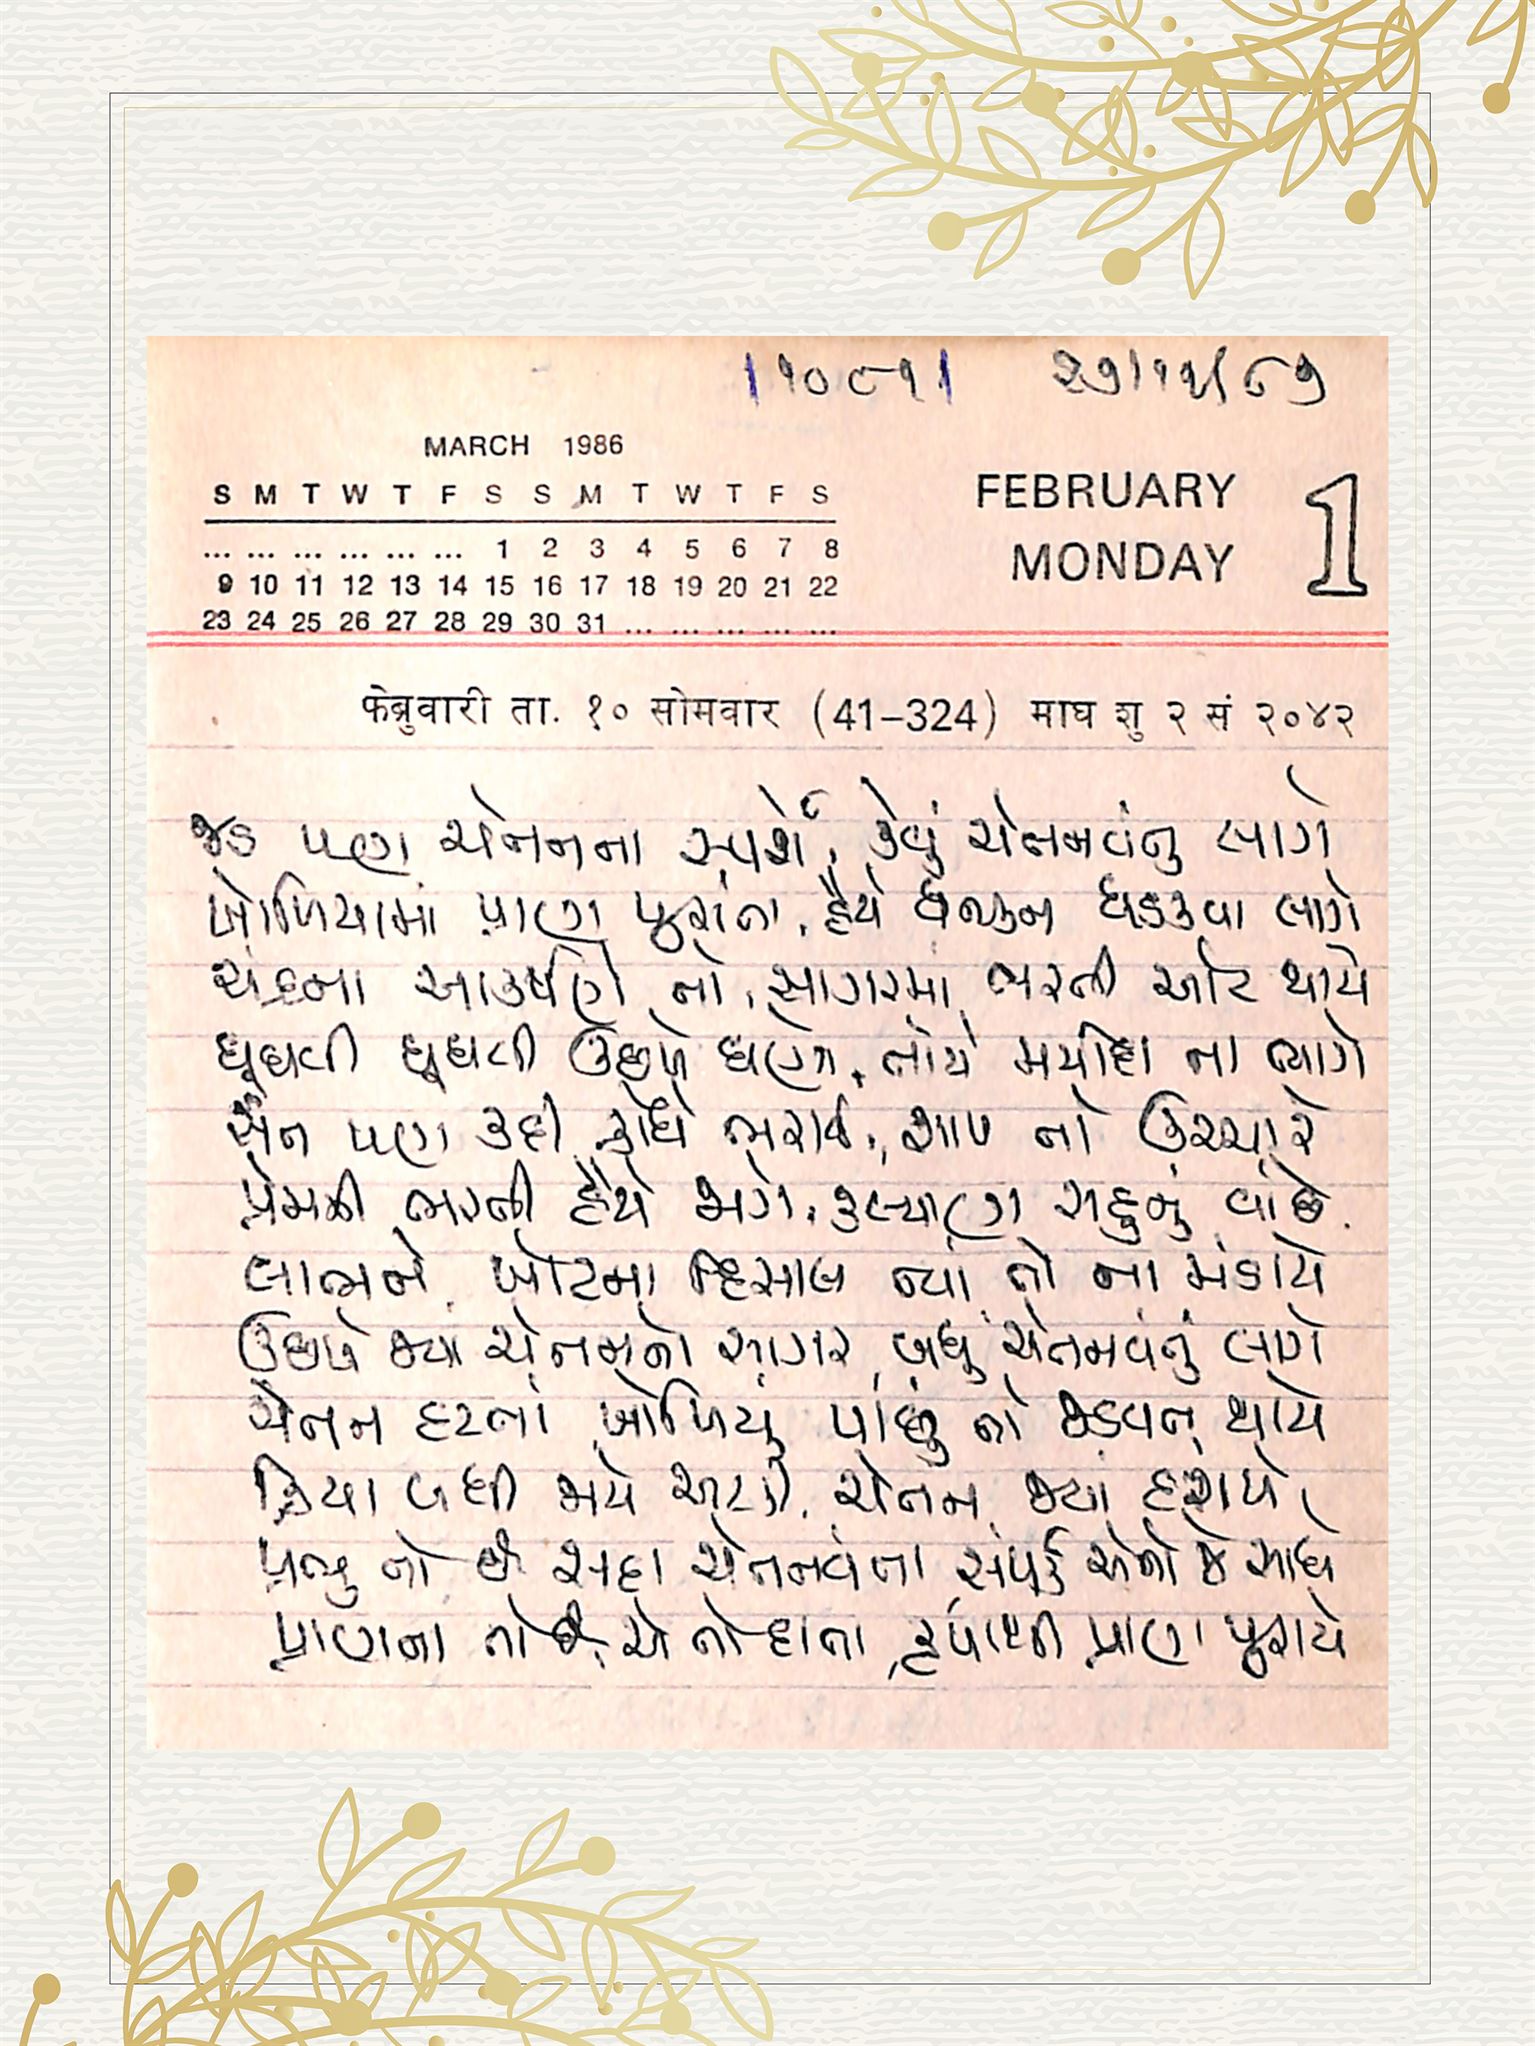 |૧૦૮૧| ૨૭/૧૧/૮૭
MARCH 1986
S M T W T F S S M T W T F S
... ... ... ... ... ... 1 2 3 4 5 6 7 8
9 10 11 12 13 14 15 16 17 18 19 20 21 22
23 24 25 26 27 28 29 30 31 ... ... ... ... ...
FEBRUARY
MONDAY
1
फेब्रुवारी ता. १० सोमवार (41-324) माघ शु २ सं २०४२
જડ પણ ચેતનના સ્પર્શે, કેવું ચેતનવંતુ લાગે
ખોળિયામાં પ્રાણ પૂરાંતા, હૈયે ધડકવા લાગે
ચંદ્રના આકર્ષણે તો, સાગરમાં ભરતી ઓટ થાયે
ઘૂઘવતી ઘૂઘવતી ઉછળે ઘણી, તોયે મર્યાદા ના ત્યાગે
સંત પણ કદી ક્રોધે ભરાઈ, શાપ તો ઉચ્ચારે
પ્રેમની ભરતી હૈયે જાગે, કલ્યાણ સહુનું વાંછે.
લાભને ખોટના હિસાબ ત્યાં તો ના મંડાયે
ઉછળે જ્યાં ચેતનનો સાગર, બધું ચેતનવંતું લાગે
ચેતન હટતાં ખોળિયું પાછું તો જડવત્ થાયે
ક્રિયા બધી જાયે અટકી, ચેતન જ્યાં હરાયે
પ્રભુ તો છે સદા ચેતનવંતા સંપર્ક એનો જે સાધે
પ્રાણના તો છે એ તો દાતા, કૃપાથી પ્રાણ પૂરાયે